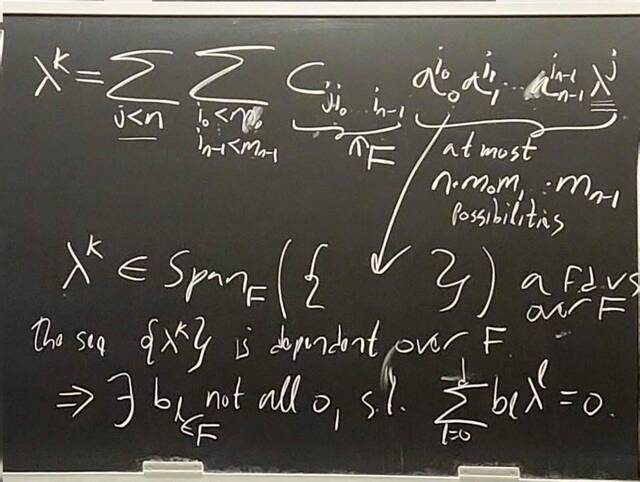 λ^k = ∑_{j<n} ∑_{i_0<m_0, i_{n-1}<m_{n-1}} C_{j i_0 ... i_{n-1}} a_0^{i_0} a_1^{i_1} ... a_{n-1}^{i_{n-1}} λ^j
↑ F
at most
n·m_0 m_1 ... m_{n-1}
possibilities
λ^k ∈ Span_F ({ }) a f.d. vs
over F
the seq {λ^k} is dependent over F.
⇒ ∃ b_l ∈ F not all 0, s.t. ∑_{l=0}^{d} b_l λ^l = 0.